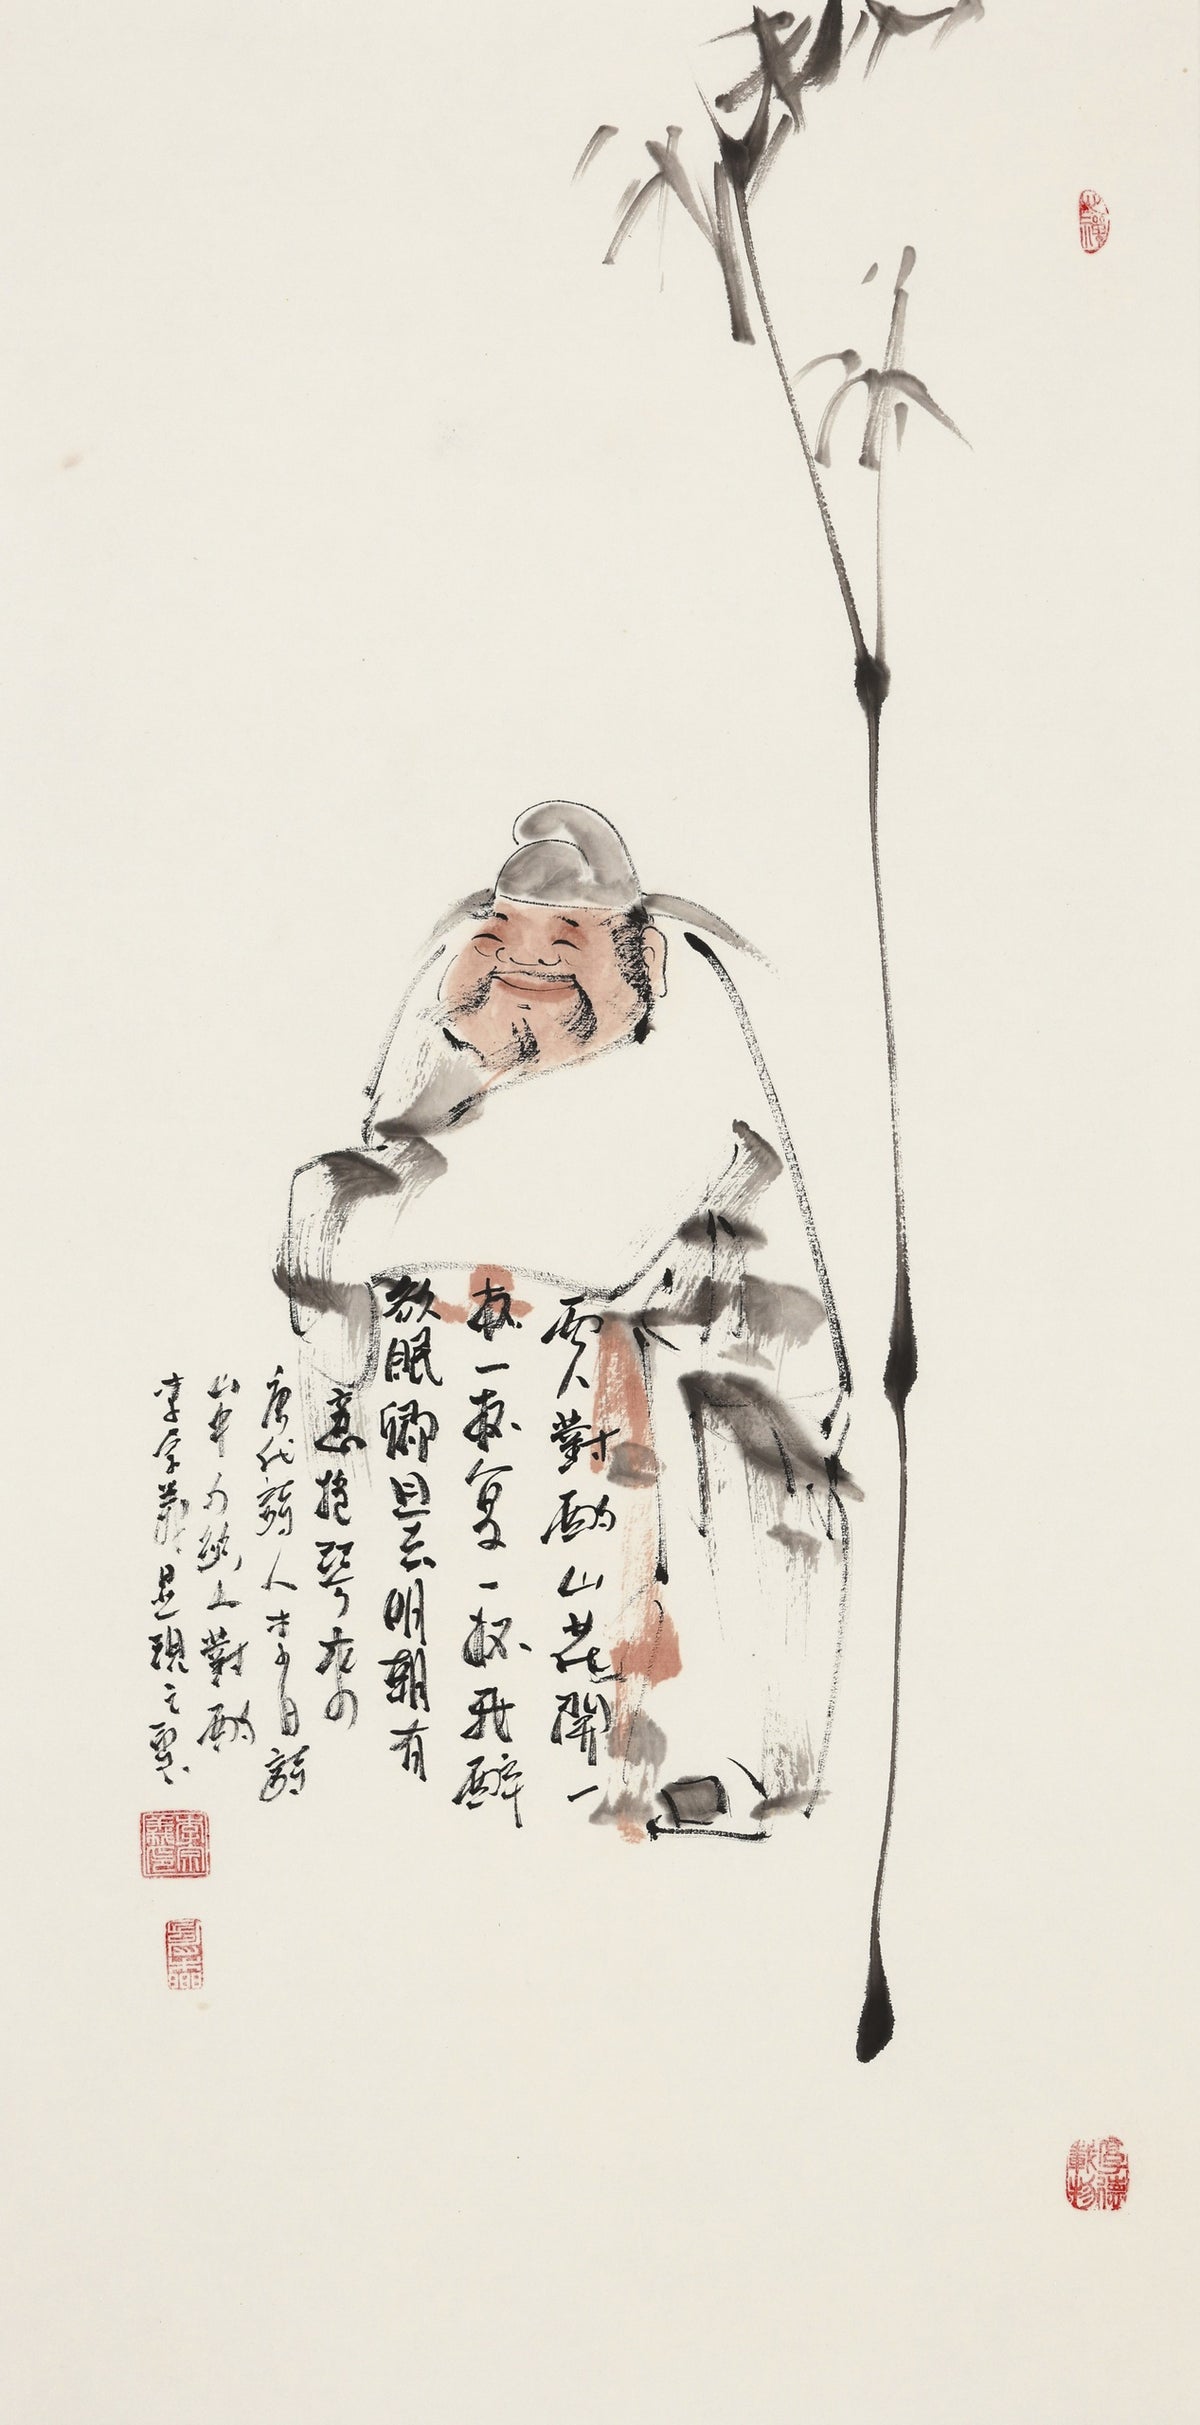 兩人對酌山花開一
杯一杯复一杯我醉
欲眠卿且去明朝有
意抱琴来
唐代詩人李白詩
山中与幽人對酌
李宗義
厚德載物